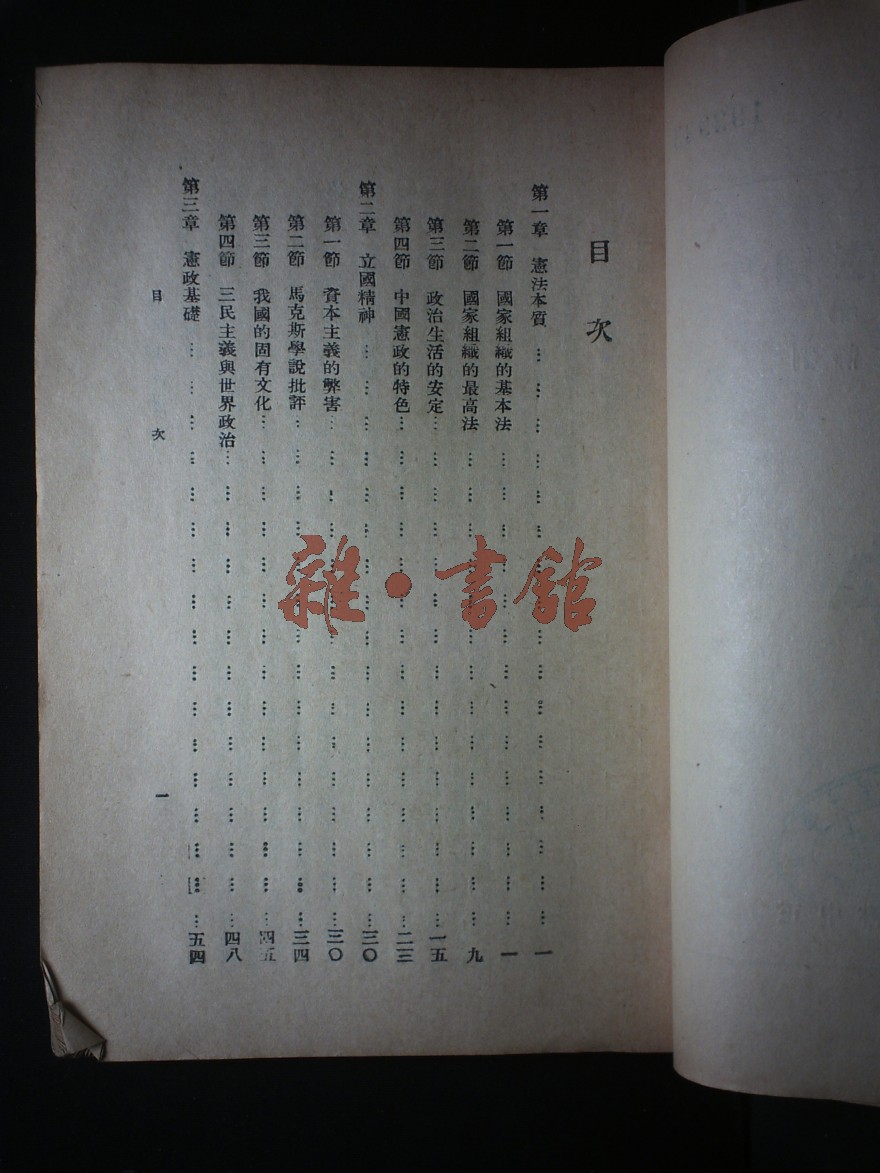 目次
第一章　憲法本質………………一
第一節　國家組織的基本法………………一
第二節　國家組織的最高法………………九
第三節　政治生活的安定………………一五
第四節　中國憲政的特色………………二三
第二章　立國精神………………三〇
第一節　資本主義的弊害………………三〇
第二節　馬克斯學說批評………………三四
第三節　我國的固有文化………………四五
第四節　三民主義與世界政治………………四八
第三章　憲政基礎………………五四
目次　一
雜·書館